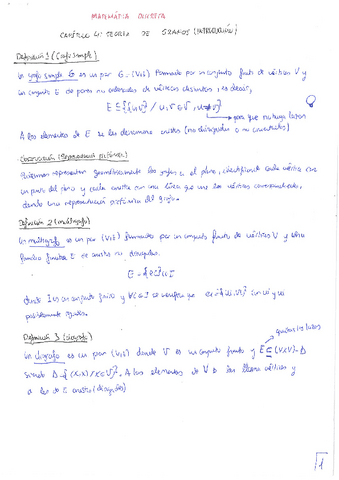 MATEMÁTICA DISCRETA
CAPÍTULO 4: TEORÍA DE GRAFOS (INTRODUCCIÓN)
Definición 1 (Grafo simple)
Un grafo simple G es un par G=(V,E) formado por un conjunto finito de vértices V y
un conjunto E de pares no ordenados de vértices distintos, es decir,
E ⊆ {{u,v} / u,v ∈ V, u≠v}
para que no haya lazos
A los elementos de E se les denomina aristas (no dirigidas o no
(Representación pictórica)
Podemos representar geométricamente los grafos en el plano, identificando cada vértice con
un punto del plano y cada arista con una línea que une los vértices correspondientes,
dando una representación pictórica del grafo.
Definición 2 (multigrafo)
Un multigrafo es un par (V,E) formado por un conjunto finito de vértices V y otra
familia finita E de aristas no dirigidas.
E = {e_i} i∈I
donde I es un conjunto finito y ∀i∈I se verifica que e_i={u_i,v_i} con u_i y v_i
posiblemente iguales.
Definición 3 (digrafo)
quitar los lazos
Un digrafo es un par (V,E) donde V es un conjunto finito y E ⊆ (V×V)-Δ
siendo Δ={(x,x)/x∈V}. A los elementos de V se les llama vértices y
a los de E aristas (dirigidas)
1